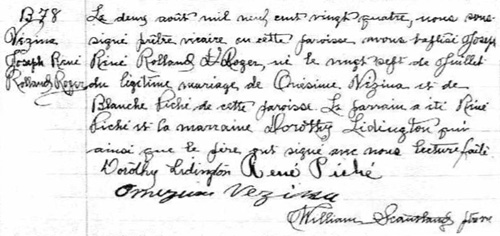 B78
Vézina
Joseph René
Rolland Roger
Le deux août mil neuf cent vingt quatre, nous sous
signé prêtre, vicaire en cette paroisse, avons baptisé Joseph
René Rolland Roger, né le vingt sept de juillet
du légitime mariage de Onésime Vézina et de
Blanche Piché de cette paroisse. Le parrain a été René
Piché et la marraine Dorothy Lidington qui
ainsi que le père, ont signé avec nous lecture faite
Dorothy Lidington René Piché
Vezina
William ptre